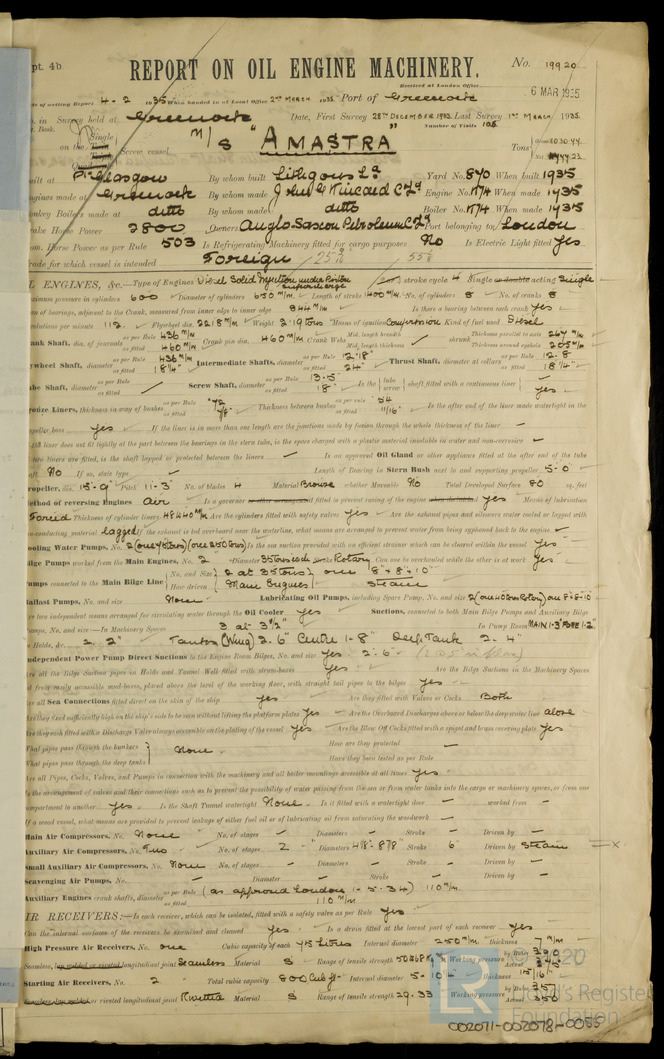 pt. 4b
REPORT ON OIL ENGINE MACHINERY.
No. 19920
Received at London Office
6 MAR 1935
of writing Report 4-2 1935 When handed in at Local Office 2nd March 1935 Port of Greenock
in Survey held at Greenock Date, First Survey 28th December 1933 Last Survey 1st March 1935
Book. Number of Visits 105
on the Single Screw vessel M/S "AMASTRA" Tons
built at Pt Glasgow By whom built Lithgows Ld Yard No. 870 When built 1935
Engines made at Greenock By whom made John G Kincaid & Co Ld Engine No. K74 When made 1935
Donkey Boilers made at ditto By whom made ditto Boiler No. K74 When made 1935
Brake Horse Power 2800 Owners Anglo-Saxon Petroleum Co Ld Port belonging to London
Nom. Horse Power as per Rule 503 Is Refrigerating Machinery fitted for cargo purposes No Is Electric Light fitted Yes
Trade for which vessel is intended Foreign
OIL ENGINES, &c.—Type of Engines Diesel Solid Injection under Piston Supercharge stroke cycle 4 Single or double acting Single
Maximum pressure in cylinders 600 Diameter of cylinders 650 m/m Length of stroke 1400 m/m No. of cylinders 8 No. of cranks 8
Span of bearings, adjacent to the Crank, measured from inner edge to inner edge 844 m/m Is there a bearing between each crank Yes
Revolutions per minute 112 Flywheel dia. 2218 m/m Weight 2.19 tons Means of ignition Compression Kind of fuel used Diesel
Crank Shaft, dia. of journals as per Rule 436 m/m as fitted 460 m/m Crank pin dia. 460 m/m Crank Webs Mid. length breadth Mid. length thickness shrunk Thickness parallel to axis 267 m/m Thickness around eyehole 205 m/m
Flywheel Shaft, diameter as per Rule 436 m/m as fitted 18¼" Intermediate Shafts, diameter as per Rule 12.18" as fitted 24" Thrust Shaft, diameter at collars as per Rule 12.8 as fitted 18¼"
Tube Shaft, diameter as per Rule as fitted Screw Shaft, diameter as per Rule 13.5 as fitted 18" Is the tube screw shaft fitted with a continuous liner Yes
Bronze Liners, thickness in way of bushes as per Rule .72 as fitted 7/8" Thickness between bushes as per rule .54 as fitted 11/16" Is the after end of the liner made watertight in the
propeller boss Yes If the liner is in more than one length are the junctions made by fusion through the whole thickness of the liner –
If the liner does not fit tightly at the part between the bearings in the stern tube, is the space charged with a plastic material insoluble in water and non-corrosive –
If two liners are fitted, is the shaft lapped or protected between the liners – Is an approved Oil Gland or other appliance fitted at the after end of the tube
shaft No If so, state type Length of Bearing in Stern Bush next to and supporting propeller 5-0"
Propeller, dia. 15-9" Pitch 11-3" No. of blades 4 Material Bronze whether Moveable No Total Developed Surface 80 sq. feet
Method of reversing Engines Air Is a governor or other arrangement fitted to prevent racing of the engine when declutched Yes Means of lubrication
Forced Thickness of cylinder liners 48 & 40 m/m Are the cylinders fitted with safety valves Yes Are the exhaust pipes and silencers water cooled or lagged with
non-conducting material Lagged If the exhaust is led overboard near the waterline, what means are arranged to prevent water from being syphoned back to the engine
Cooling Water Pumps, No. 2 Is the sea suction provided with an efficient strainer which can be cleared within the vessel Yes
Bilge Pumps worked from the Main Engines, No. 2 Diameter 35 tons each Rotary Can one be overhauled while the other is at work Yes
Pumps connected to the Main Bilge Line No. and Size 2 at 35 tons one 8" x 8" x 10"
How driven Main Engines Steam
Ballast Pumps, No. and size None Lubricating Oil Pumps, including Spare Pump, No. and size
Are two independent means arranged for circulating water through the Oil Cooler Yes Suctions, connected to both Main Bilge Pumps and Auxiliary Bilge
Pumps, No. and size:—In Machinery Spaces 3 at 3½" In Pump Room MAIN 1-3" FORE 1-2"
In Holds, &c. 2. 2" Tanks (Wing) 2.6" Centre 1-8" Deep Tank 2-4"
Independent Power Pump Direct Suctions to the Engine Room Bilges, No. and size Yes 2-6"
Are all the Bilge Suction pipes in Holds and Tunnel Well fitted with strum-boxes Yes Are the Bilge Suctions in the Machinery Spaces
led from easily accessible mud-boxes, placed above the level of the working floor, with straight tail pipes to the bilges Yes
Are all Sea Connections fitted direct on the skin of the ship Yes Are they fitted with Valves or Cocks Both
Are they fixed sufficiently high on the ship's side to be seen without lifting the platform plates Yes Are the Overboard Discharges above or below the deep water line above
Are they each fitted with a Discharge Valve always accessible on the plating of the vessel Yes Are the Blow Off Cocks fitted with a spigot and brass covering plate Yes
What pipes pass through the bunkers None How are they protected –
What pipes pass through the deep tanks Have they been tested as per Rule –
Are all Pipes, Cocks, Valves, and Pumps in connection with the machinery and all boiler mountings accessible at all times Yes
Is the arrangement of valves and their connections such as to prevent the possibility of water passing from the sea or from water tanks into the cargo or machinery spaces, or from one
compartment to another Yes Is the Shaft Tunnel watertight None Is it fitted with a watertight door – worked from –
If a wood vessel, what means are provided to prevent leakage of either fuel oil or of lubricating oil from saturating the woodwork –
Main Air Compressors, No. None No. of stages – Diameters – Stroke – Driven by –
Auxiliary Air Compressors, No. Two No. of stages 2 Diameters Stroke 6" Driven by Steam
Small Auxiliary Air Compressors, No. None No. of stages – Diameters – Stroke – Driven by –
Scavenging Air Pumps, No. – Diameter – Stroke – Driven by –
Auxiliary Engines crank shafts, diameter as per Rule (as approved London 1-5-34) 110 m/m as fitted 110 m/m
AIR RECEIVERS:—Is each receiver, which can be isolated, fitted with a safety valve as per Rule Yes
Can the internal surfaces of the receivers be examined and cleaned Yes Is a drain fitted at the lowest part of each receiver Yes
High Pressure Air Receivers, No. one Cubic capacity of each 75 Litres Internal diameter 250 m/m thickness 7 m/m
Seamless, lap welded or riveted longitudinal joint Seamless Material S Range of tensile strength Working pressure by Rules Actual
Starting Air Receivers, No. 2 Total cubic capacity 800 Cub ft Internal diameter thickness 15/16"
Seamless, lap welded or riveted longitudinal joint Rivetted Material S Range of tensile strength 29.33 Working pressure by Rules Actual 350
© 2020
Lloyd's Register
Foundation
LR
002071-002078-0055